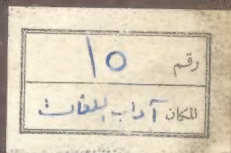 رقم ١٥
للمكان آداب اللغات